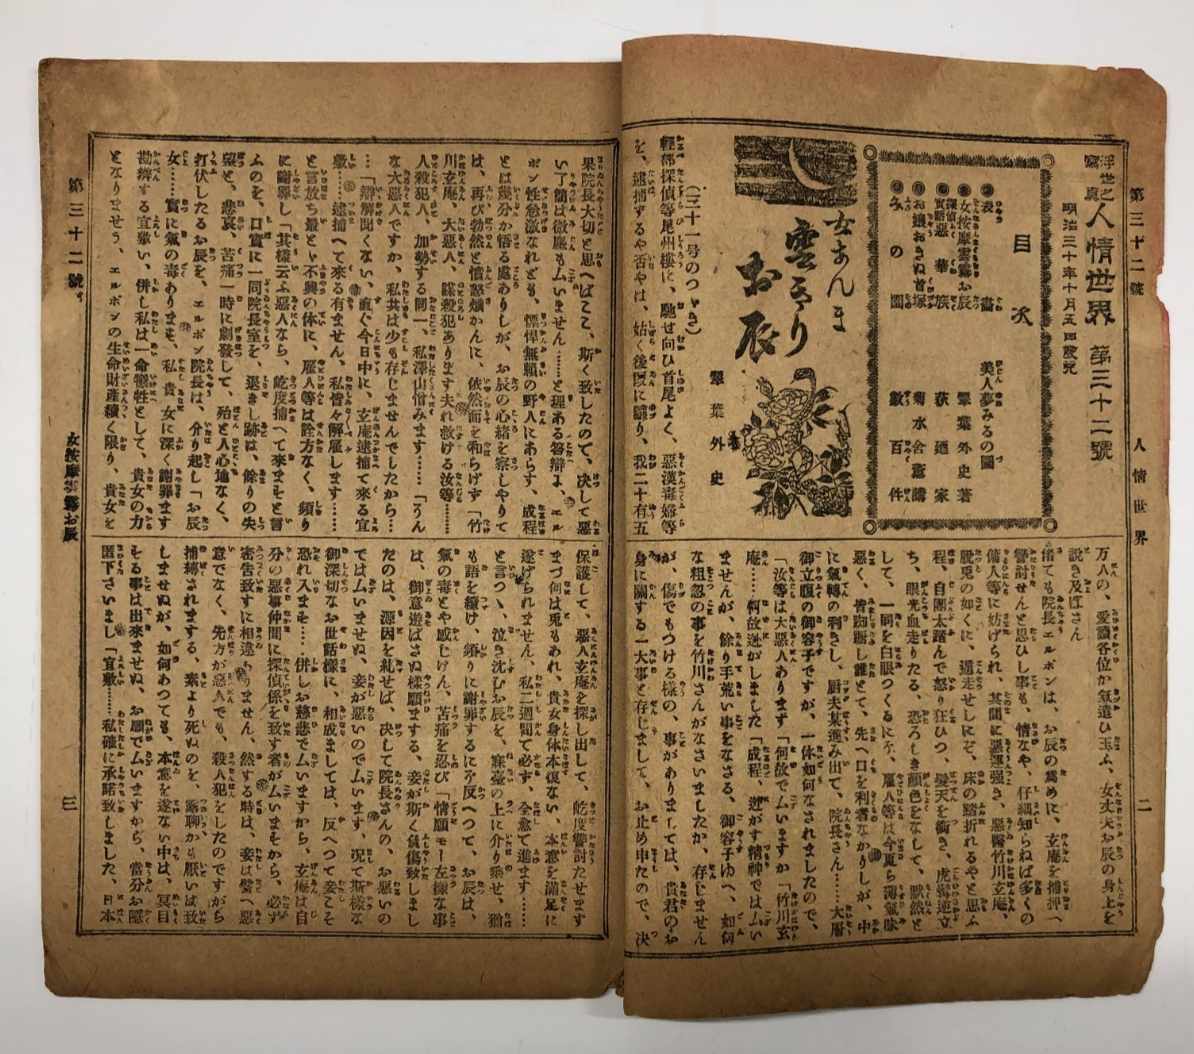 第三十二號
人情世界
二
浮世之寫眞 人情世界 第三十二號
明治三十年十月五日發兌
目次
表畵 美人夢みるの圖
女按摩雲霧お辰 翠葉外史著
探偵實話惡華族 荻廼家
お孃おきぬ首塚 菊水舍薫濤
みの園 數百件
女あんま
雲きり
お辰
翠葉外史
(三十一号のつゞき)
輕部探偵等尾州樓に、馳せ向ひ首尾よく、惡漢毒婦等
を、逮捕するや否やは、姑く後段に讓り、我二十有五
万人の、愛讀各位が氣遣ひ玉ふ、女丈夫お辰の身上を
説き及ぼさん
偖ても院長エルボンは、お辰の爲めに、玄庵を捕押へ
讐討せんと思ひし事も、情なや、仔細知らねば多くの
傭人等に妨げられ、其間に惡運强き、惡醫竹川玄庵、
脱兎の如くに、遁走せしにぞ、床の踏折れるやと思ふ
程、自團太踏んで怒り狂ひつ、髮天を衝き、虎髯逆立
ち、眼光血走りたる、恐ろしき顔色をなして、默然と
して、一同を白眼つくるにぞ、雇人等は今更ら薄氣味
惡く、皆踟蹰し誰とて、先へ口を利者なかりしが、中
に氣轉の利きし、厨夫某進み出て、院長さん……大層
御立腹の御容子ですが、一体如何なされましたので、
「汝等は大惡人あります「何故でムいますか「竹川玄
庵……何故迯がしました「成程、迯がす精神ではムい
ませんが、餘り手荒い事をなさる、御容子ゆへ、如何
な粗忽の事を竹川さんがなさいましたか、存じません
が、傷でもつける樣の、事がありましては、貴君のお
身に關する一大事と存じまして、お止め申たので、决
果院長大切と思へばこそ、斯く致したので、决して惡
い了簡は微塵もムいません……と理ある答辯よ、エル
ボン性急激なれども、慓悍無頼の野人にあらず、成程
とは幾分か悟る處ありしが、お辰の心緒を察しやりて
は、再び勃然と憤怒熾かんに、依然面を和らげず「竹
川玄庵、大惡人、謀殺犯あります夫れ救ける汝等……
人殺犯人、加勢する同一、私澤山憎みます……「そん
な大惡人ですか、私共は少も存じませんでしたから…
…「辯解聞くない、直ぐ今日中に、玄庵逮捕て來る宜
敷……逮捕へて來る有ません、私皆々解雇します……
と言放ち最と不興の体に、雇人等は詮方なく、頻り
に謝罪し「其樣云ふ惡人なら、屹度捕へて來ませと冒
ふのを、口實に一同院長室を、退きし跡は、餘りの失
望と、悲哀、苦痛一時に劇發して、殆と人心地なく、
打伏したるお辰を、エルボン院長は、介り起し「お辰
女……實に氣の毒あります、私、貴女に深く謝罪ます
勘辨する宜敷い、併し私は一命犧牲として、貴女の力
となりませう、エルボンの生命財產續く限り、貴女を
保護して、惡人玄庵を探し出して、屹度讐討たせます
まづ何は兎もあれ、貴女身体本復ない、本意を滿足に
遂げられません、私二週間で必ず、全愈て進ます……
と言つゝ、泣き沈むお辰を、寐臺の上に介り乘せ、猶
も語を續け、頻りに謝罪するにぞ反へつて、お辰は、
氣の毒とや感じけん、苦痛を忍び「情願モー左樣な事
は、御意遊ばさぬ樣願まする、妾が斯く負傷致しまし
たのは、源因を糺せば、决して院長さんの、お惡いの
ではムいませぬ、妾が惡いのでムいます、况て斯樣な
御深切なお世話樣に、相成まして は、反へつて妾こそ
恐れ入ます……併しお慈悲でムいますから、玄庵は自
分の惡事仲間に探偵係を致す者がムいますから、必ず
密告致すに相違ムいません、然する時は、妾は譬へ惡
意でなく、先方が惡人でも、殺人犯をしたのですがら
捕縛されまする、素より死ぬのを、露聊かも厭いは致
しませぬが、如何あつても、本意を遂ない中は、冥目
する事は出來ませぬ、お願でムいますから、當分お隱
匿下さいまし「宜敷……私確に承諾致しました、日本
第三十二號
女按摩雲霧お辰
三